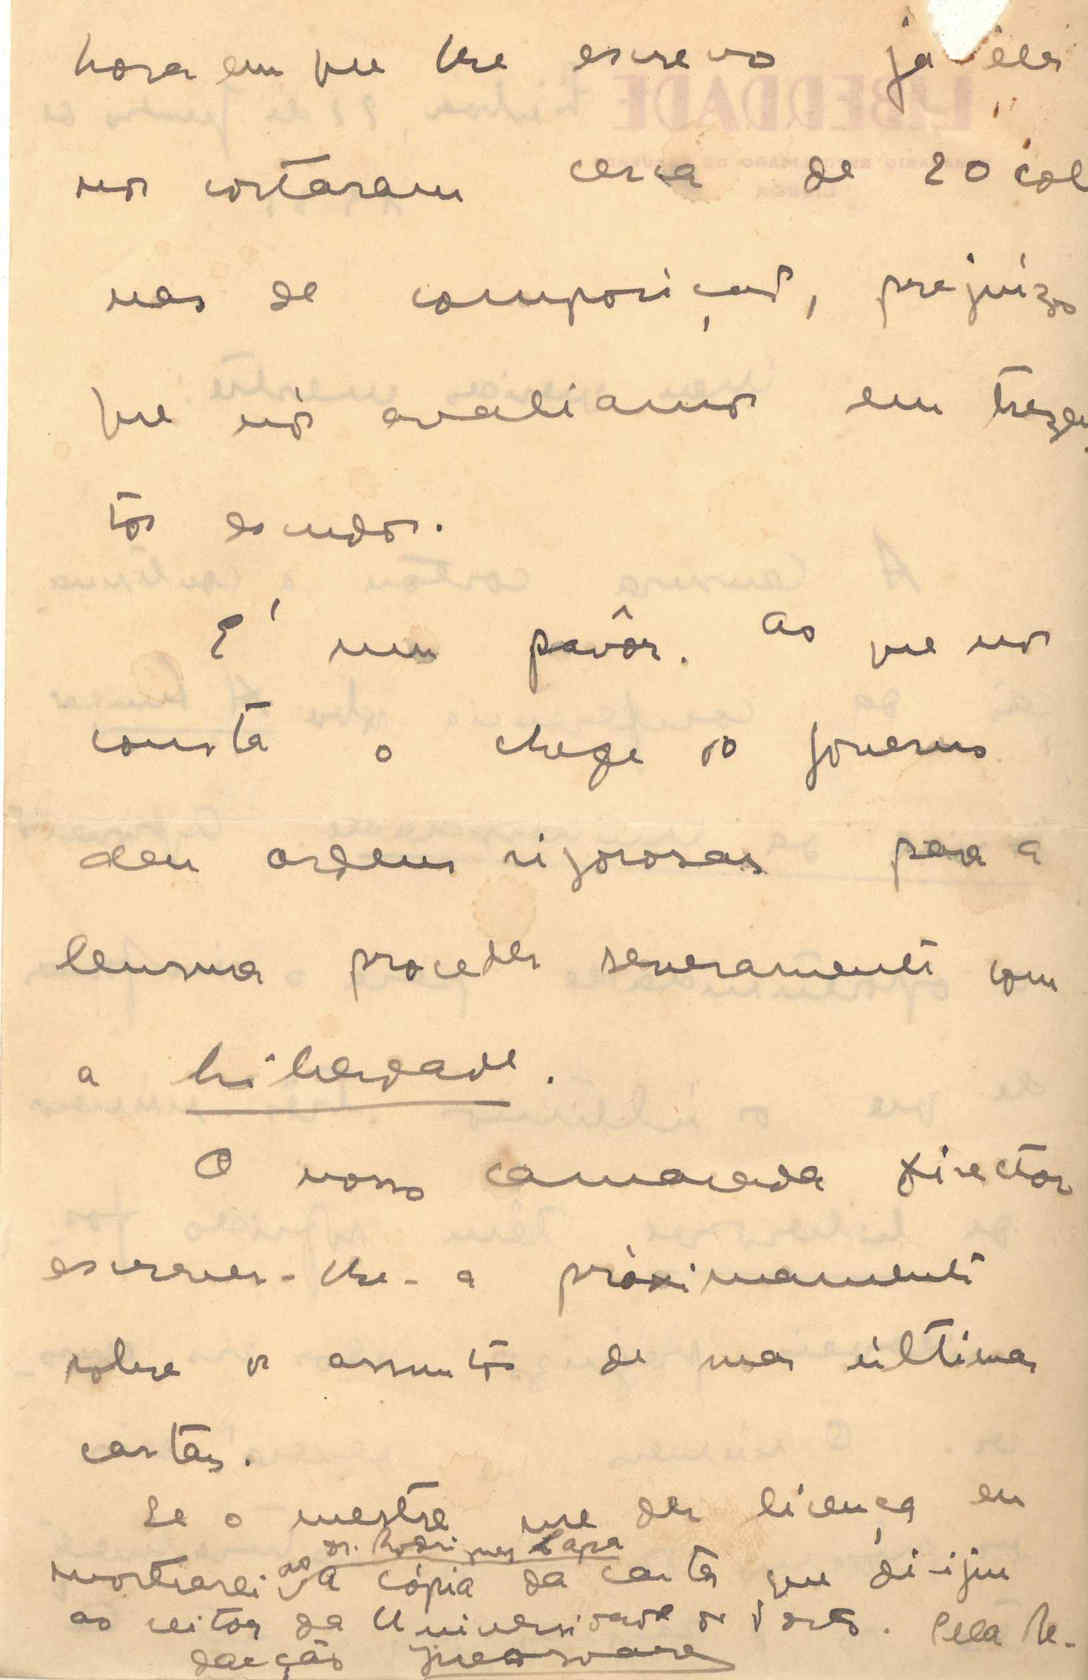 hora em que lhe escrevo já eles
nos cortaram cerca de 20 colu
nas de composição, prejuízo
que nós avaliamos em trezen
tos escudos.
E' um pavôr. Ao que nos
consta o chefe do governo
deu ordens rigorosas para a
Censura proceder severamente com
a Liberdade.
O nosso camarada director
escrever-lhe-a próximamente
sobre os assuntos de suas últimas
cartas.
Se o mestre me der licença eu
mostrarei ao Dr. Rodrigues Lapa a cópia da carta que dirijiu
ao reitor da Universidade do Porto. Pela Re-
dacção